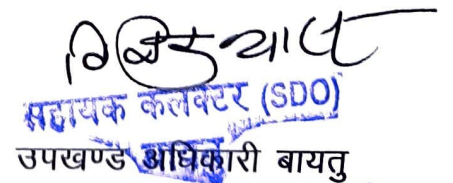 सहायक कलेक्टर (SDO)
उपखण्ड अधिकारी बायतु